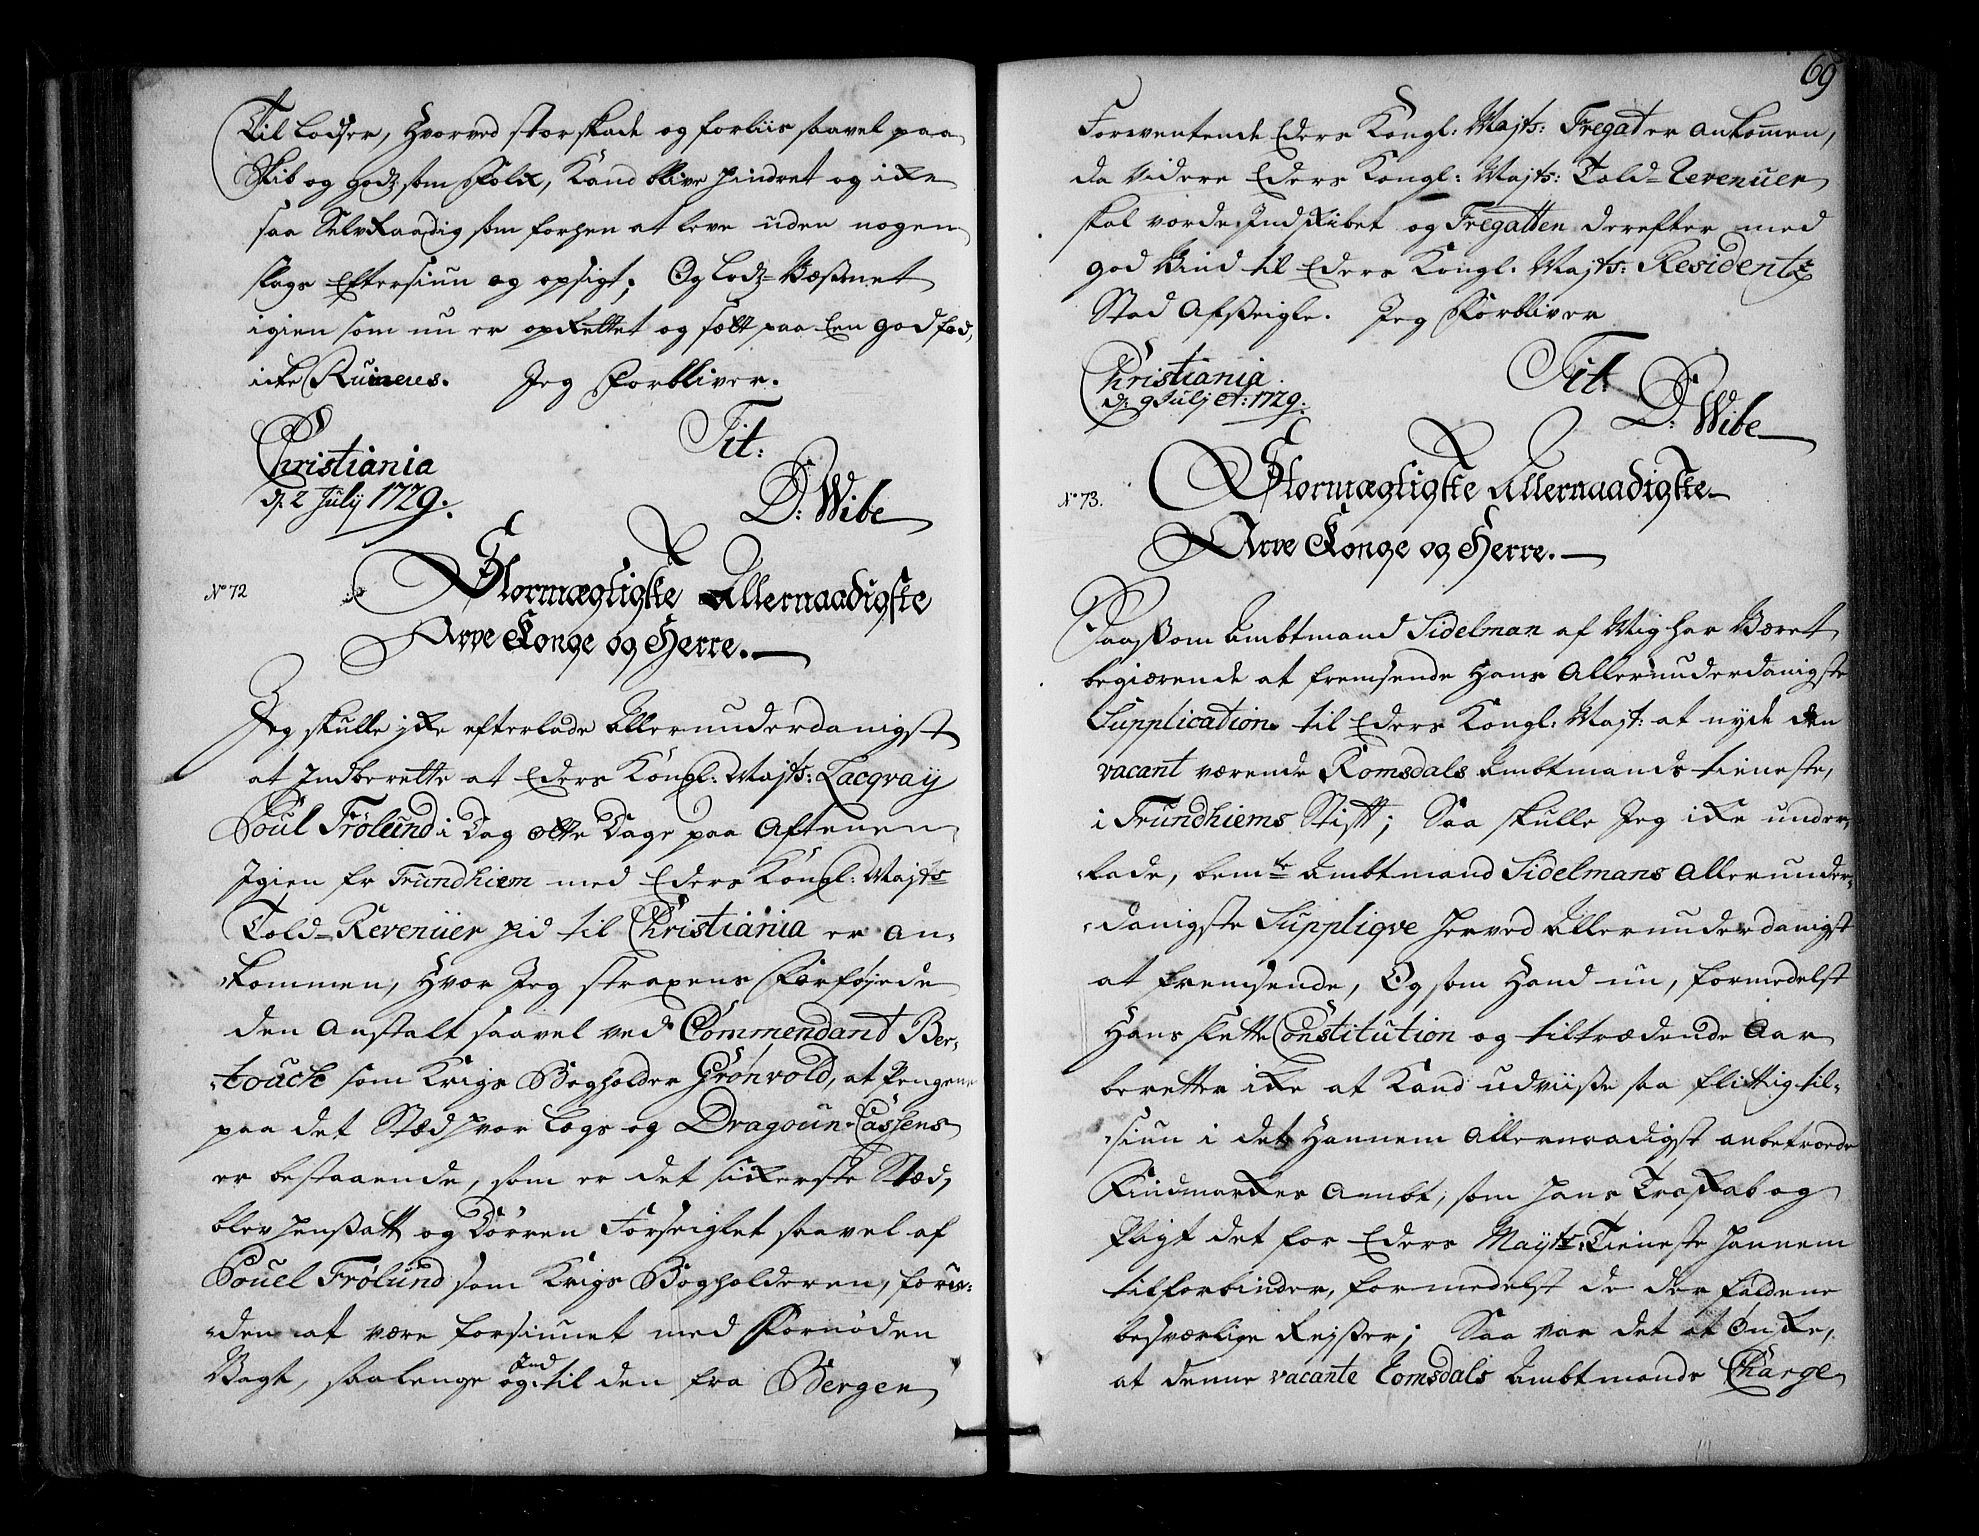 Til Lodser, Hvorved stor skade og forliis saavel paa
Skib og godz som Folk, Kand blive hindret og ikke
saa Selvraadig som forhen at leve uden nogen
slags Eftersiun og opsigt; Og Lodz-Væsenet
igien som nu er oprettet og satt paa Een god fod,
icke Ruineres. Jeg Forbliver.
Christiania
d. 2 July 1729.
Tit:
D: Wibe
No 72
Stormægtigste Allernaadigste
Arve Konge og Herre.
Jeg skulle ikke efterlade Allerunderdanigst
at Indberette at Eders Kongl: Majts: Lacqvay
Poul Frölund i Dag otte Dage paa Aftenen
Igien fr Trundhiem med Eders Kongl: Majts
Told-Revenüer hid til Christiania er an-
kommen, Hvor Jeg straxens Forføjede
den Anstalt saavel ved Commendant Ber-
touch som Krigs Bogholder Grönvold, at Pengene
paa det Stæd hvor Logs og Dragoun-Cassens
er bestaaende, som er det sikerste Stæd,
blev hensatt og Dörren Forseiglet saavel af
Pouel Frölund som Krigs Bogholderen, foru-
den at være forsiunet med Fornöden
Vagt, saalenge og Ind til den fra Bergen
69
Forventende Eders Kongl: Majts: Fregat er ankommen,
da videre Eders Kongl: Majts: Told-Revenuer
skal vorde Indskibet og Fregatten derefter med
god Vind til Eders Kongl. Majts: Residentz
Stad Afseigle. Jeg Forbliver
Christiania
d. 9 Julj A: 1729.
Tit:
D: Wibe
No 73.
Stormægtigste Allernaadigste
Arve Konge og Herre.
Saasom Ambtmand Sidelman af Mig har Været
begiærende at fremsende Hans Allerunderdanigste
Supplication til Eders Kongl: Majt: at nyde den
vacant værende Romsdals Ambtmands tieneste,
i Trundhiems Stift; Saa skulle Jeg ike under-
lade, bemte Ambtmand Sidelmans Allerunder-
danigste Suppliqve herved Allerunderdanigst
at fremsende, Og som Hand nu, formedelst
Hans slette Constitution og tiltrædende Aar
beretter ike at Kand udviise saa flittig til-
siun i det Hannem Allernaadigst anbetroede
Findmarkes Ambt, som hans Troskab og
Pligt det for Eders Mayts: Tieneste hannem
tilforbinder, formedelst de der faldene
besværlige Rejser; Saa var det at Önske,
at denne vacante Romsdals Ambtmands Charge